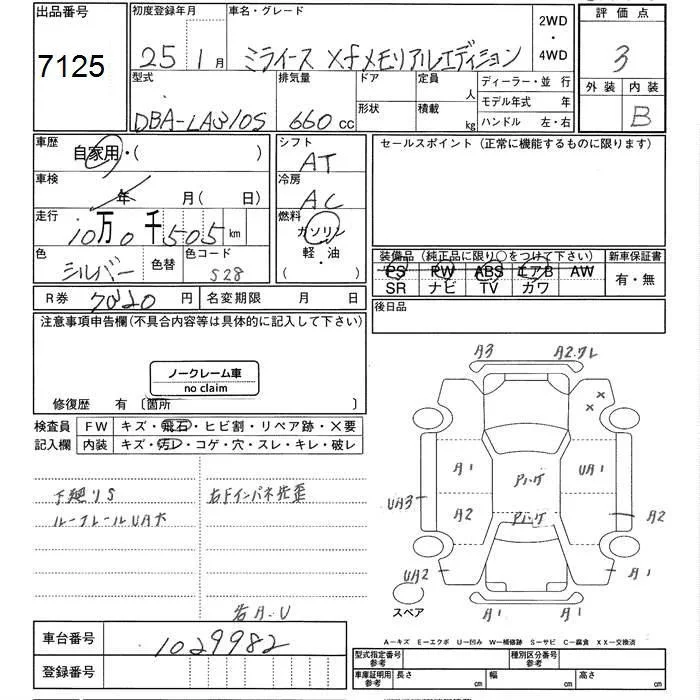 出品番号
7125
初度登録年月
25年1月
車名・グレード
ミライース Xfメモリアルエディション
2WD
・
4WD
評価点
3
外装 内装
B
型式
DBA-LA310S
排気量
660 cc
ドア
形状
定員
人
積載
kg
ディーラー・並行
モデル年式 年
ハンドル 左・右
車歴
自家用・( )
車検
年 月( 日)
走行
10万0千505km
色
シルバー
色替
色コード
S28
シフト
AT
冷房
AC
燃料
ガソリン
軽・油
セールスポイント(正常に機能するものに限ります)
装備品(純正品に限り○をつけて下さい)
PS PW ABS エアB AW
SR ナビ TV カワ
新車保証書
有・無
後日品
R券 円
名変期限 月 日
注意事項申告欄(不具合内容等は具体的に記入して下さい)
ノークレーム車
no claim
修復歴 有〔箇所 〕
検査員
記入欄
FW キズ・飛石・ヒビ割・リペア跡・X要
内装 キズ・汚レ・コゲ・穴・スレ・キレ・破レ
下廻りS
ルーフレールUA大
右Fインパネ先歪
右A.U
A3
A2.クレ
××
A1
アハゲ
UA1
UA3
A2
アハゲ
A2
UA2
A1
A1
A1
スペア
A―キズ E―エクボ U―凹み W―補修跡 S―サビ C―腐食 XX―交換済
車台番号
1029982
登録番号
型式指定番号
参考
種別区分番号
参考
車庫証明用
参考
長さ cm
幅 cm
高さ cm